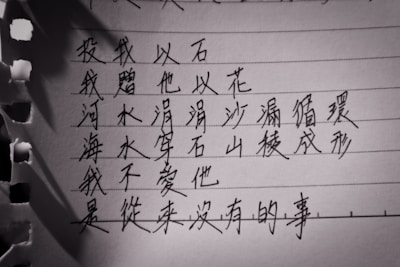 投我以石
我贈他以花
河水涓涓沙漏循環
海水穿石山稜成形
我不愛他
是從来沒有的事